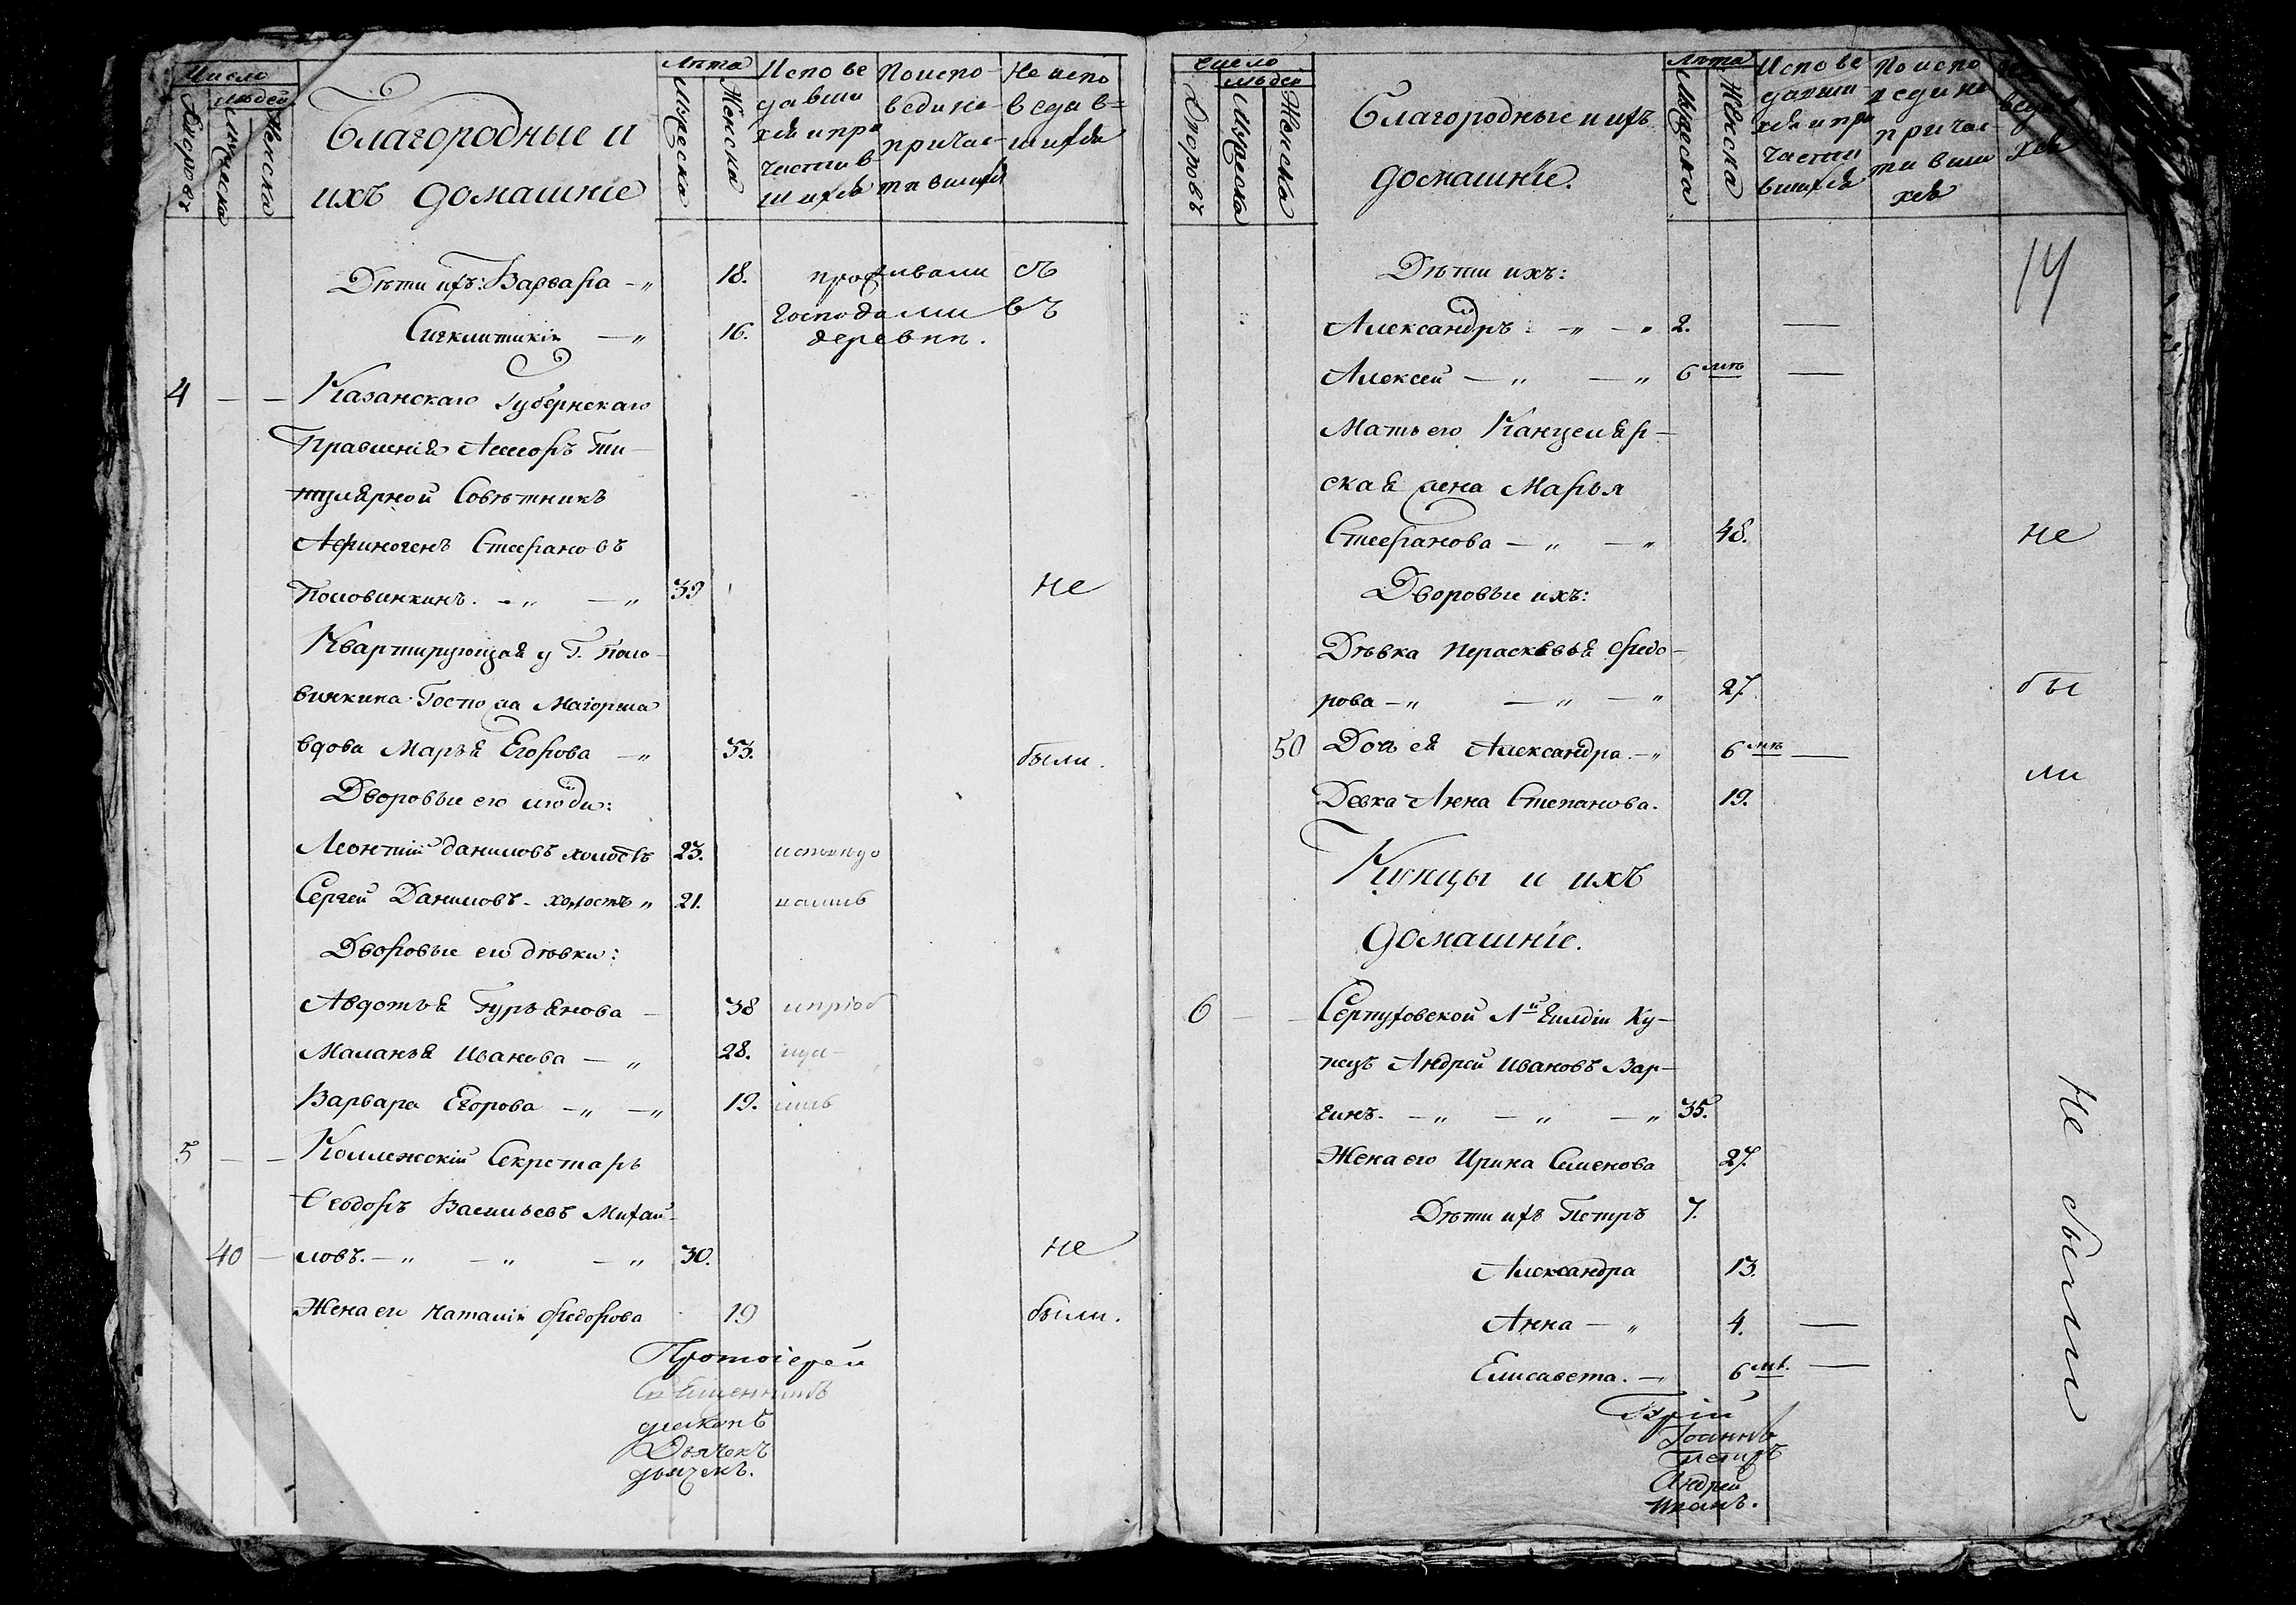 Число
Людей
Дворовъ
Мужеска
Женска
Благородные и
ихъ домашніе
Лѣта
Мужеска
Женска
Испове
давши
хся и при
частив
шихся
По испо
ведине
причас
тившихся
Не испо
ведав=
шихся
Дѣти ихъ: Варвара — „ 18. проживали съ
16. господами въ
деревнѣ.
4 — — Казанскаго Губернскаго
Правленія Ассесоръ Ти—
тулярной Совѣтникъ
Афиногенъ Стефановъ
Половинкинъ. — „ — „ 39 не
Квартирующая у Г. Поло—
винкина Госпожа Маіорша
вдова Марья Егорова — „ 53. были.
Дворовые его люди:
Леонтий Даниловъ холостъ 23.
Сергей Даниловъ — холостъ „ 21.
Дворовые его дѣвки:
Авдотья Гурьянова — 38
Маланья Иванова — „ 28.
Варвара Егорова — „ — „ 19.
5 — — Коллежскій Секретарь
Феодоръ Васильевъ Михай—
40 — ловъ. — „ — „ — „ 30. не
Жена его Наталія Федорова 19 были.
Протоіерей
Священникъ
диаконъ
Дьячекъ
дьячекъ.
Число
Людей
Дворовъ
Мужеска
Женска
Благородные и ихъ
домашніе.
Лѣта
Мужеска
Женска
Испове
давши
хся и при
части
вшихся
По испо
ведине
причас—
тивши
хся
14
Дѣти ихъ:
Александръ — „ — „ 2. —
Алексей — „ — „ 6 мѣ —
Мать его Канцеляр—
ская жена Марья
Стефанова — „ — „ 48. не
Дворовые ихъ:
Дѣвка Перасковья Федо—
рова — „ — „ — „ 27. бы
50 Дочь ея Александра. — „ 6 мѣ —
ли
Девка Анна Степанова. 19.
Купцы и ихъ
домашніе.
6 — — Серпуховской Гилдіи Ку—
пецъ Андрей Ивановъ Вар—
гинъ. — „ — „ — „ 35.
Жена его Ирина Семенова 27.
Дѣти ихъ Петръ 7.
Александра 13.
Анна — „ 4. —
Елисавета. — „ 6 мѣ. —
Не были
Іоаннъ
Петръ
Андрей
Иванъ.